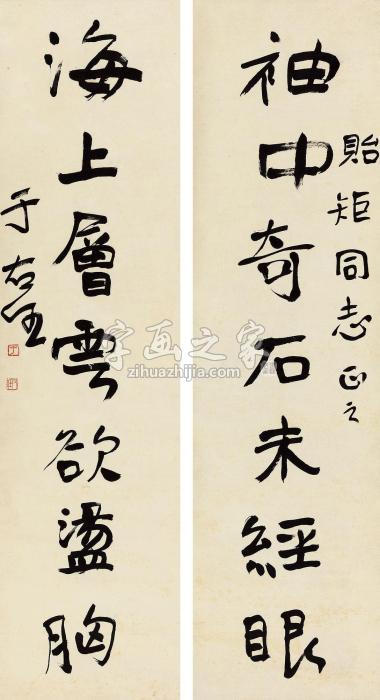 貽矩同志正之
袖中奇石未經眼
海上層雲欲盪胸
于右任
字画之家
zihuazhijia.com